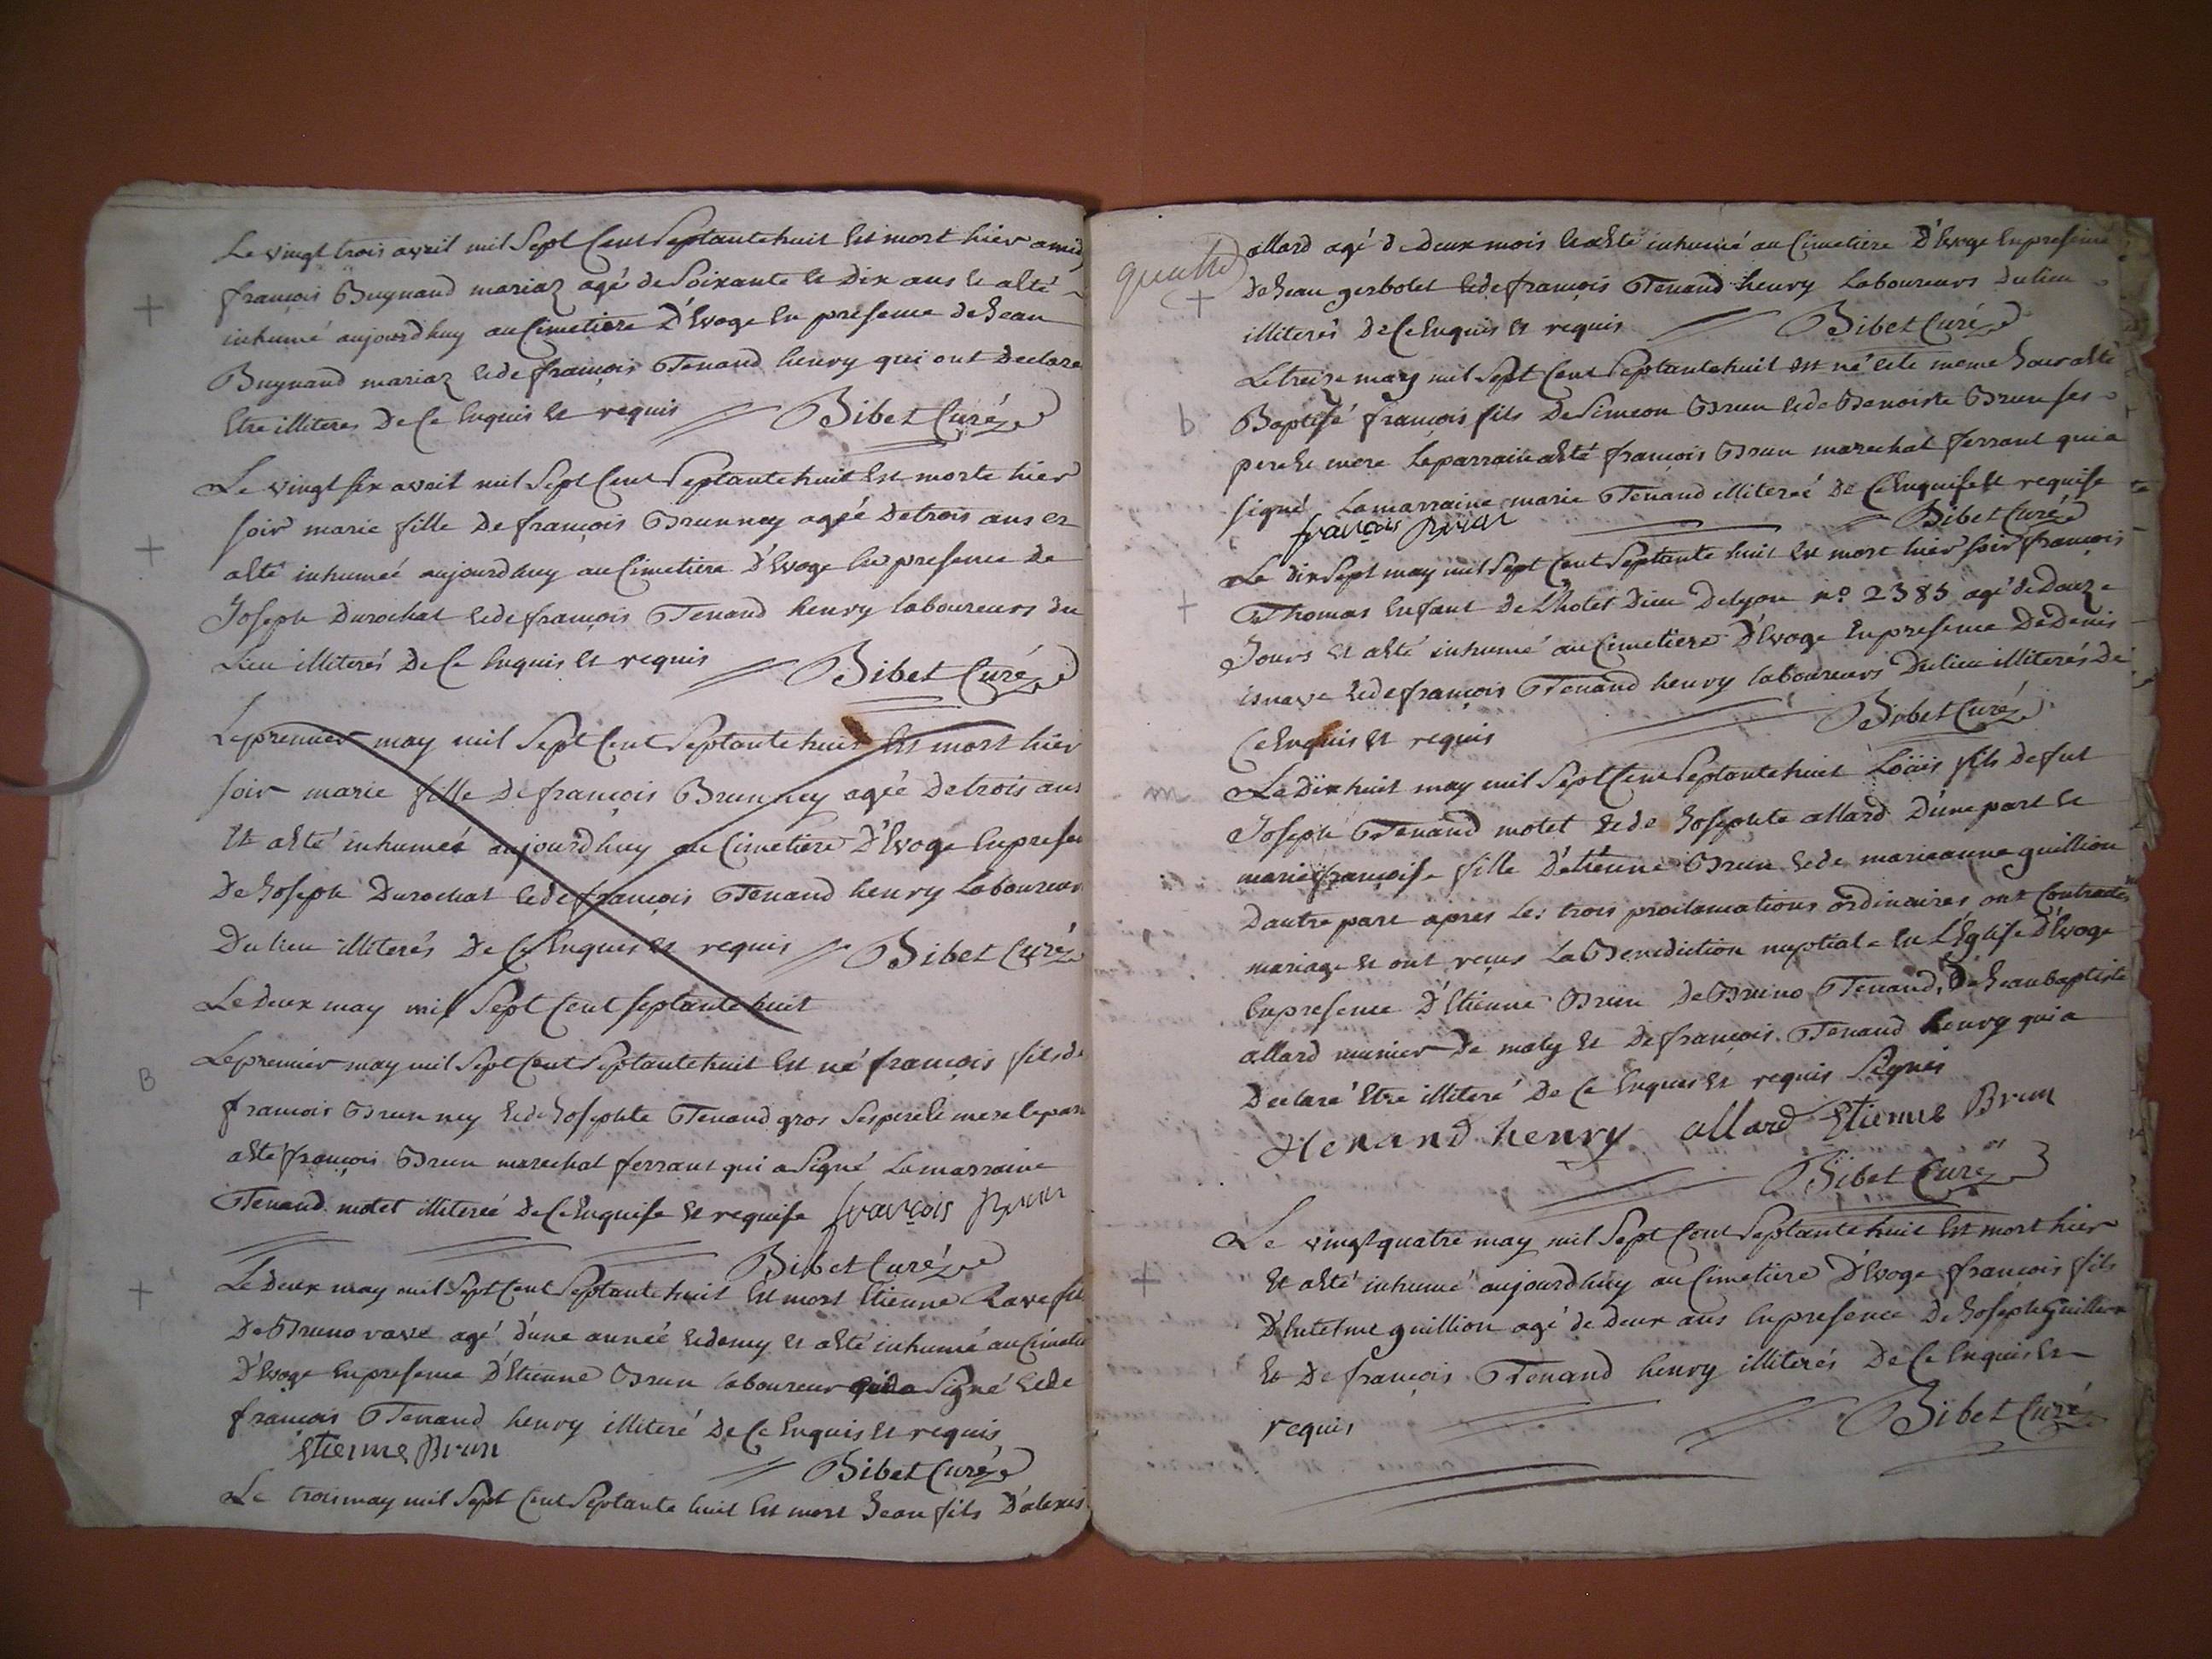 Le vingt trois avril mil Sept Cent Septante huit Est mort hier a midy
+ françois Buynand mariaz agé de Soixante et Dix ans et a Eté
inhumé aujourdhuy au Cimetiere D'Evoge En présence de Jean
Buynand mariaz et de françois Tenand henry qui ont Declare
Etre illiteres De Ce Enquis et requis Bibet Curé
Le vingt six avril mil Sept Cent Septante huit Est morte hier
+ soir marie fille De françois Brun ney agéé De trois ans et
a Eté inhumeé aujourdhuy au Cimetiere D'Evoge En presence De
Joseph Durochat et de françois Tenand henry laboureurs du
Lieu illiterés De Ce Enquis et requis Bibet Curé
Le premier may mil Sept Cent Septante huit Est mort hier
soir marie fille De françois Brun ney ageé De trois ans
Et a Eté inhumeé aujourd'huy au Cimetiere D'Evoge En presen
De Joseph Durochat et de françois Tenand henry Laboureur
Du lieu illiterés De Ce Enquis et requis Bibet Curé
Le deux may mil Sept Cent Septante huit
B Le premier may mil Sept Cent Septante huit Est né françois fils de
françois Brun ney et de Josephte Tenand gros Ses pere et mere le par
a Eté françois Brun marechal ferrant qui a Signé La marraine
Tenand motet illitereé De Ce Enquise et requise françois Brun
Bibet Curé
+ Le Deux may mil Sept Cent Septante huit Est mort Etienne Rave fils
De Bruno rave agé d'une anneé et demy et a Eté inhumé au Cimetie
D'Evoge En presence D'Etienne Brun laboureur qui a Signé et de
françois Tenand henry illiteré De Ce Enquis et requis
Etienne Brun Bibet Curé
Le trois may mil Sept Cent Septante huit Est mort Jean fils D'alexis
quatre allard agé de Deux mois et a Eté inhumé au Cimetiere D'Evoge En presence
+ De Jean gerbolet et de françois Tenand henry Laboureurs Du lieu
illiterés De Ce Enquis et requis Bibet Curé
Le treize may mil Sept Cent Septante huit Est né et le meme Jour a Eté
b Baptisé françois fils De Simeon Brun et de Benoiste Brun ses
pere et mere Le parrain a Eté françois Brun marechal ferrant qui a
signé La marraine marie Tenand illitereé De Ce Enquise et requise
françois Brun Bibet Curé
Le Dix Sept may mil Sept Cent Septante huit Est mort hier soir françois
+ Thomas Enfant De L'hotel Dieu De lyon n° 2385 agé de Douze
Jours et a Eté inhumé au Cimetiere D'Evoge En presence De Denis
et de françois Tenand henry laboureurs Du lieu illiterés De
Ce Enquis et requis Bibet Curé
m Le Dix huit may mil Sept Cent Septante huit Loüis fils de fut
Joseph Tenand motet et de Josephte allard D'une part et
marie françoise fille D'étienne Brun et de marie anne guillion
Dautre part apres les trois proclamations ordinaires ont Contracté
mariage et ont reçus La Benediction nuptiale En L'Eglise D'Evoge
En presence D'Etienne Brun De Bruno Tenand, De Jean baptiste
allard munier De moly et De françois Tenand henry qui a
Declaré Etre illiteré De Ce Enquis et requis Signés
Henand henry allard Etienne Brun
Bibet Curé
Le vingt quatre may mil Sept Cent Septante huit Est mort hier
+ Et a Eté inhumé aujourdhuy au Cimetiere D'Evoge françois fils
D'antelme guillion agé de Deux ans En presence De Joseph Guillion
Et De françois Tenand henry illiterés De Ce Enquis Et
requis Bibet Curé